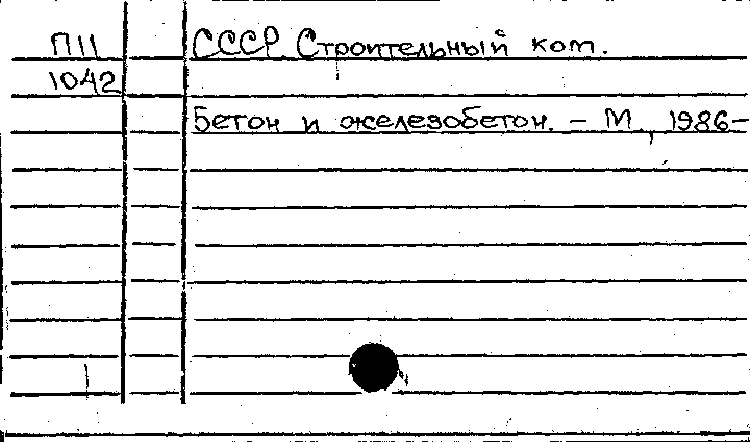 П11 СССР Строительный ком.
1042
Бетон и железобетон. – М, 1986–